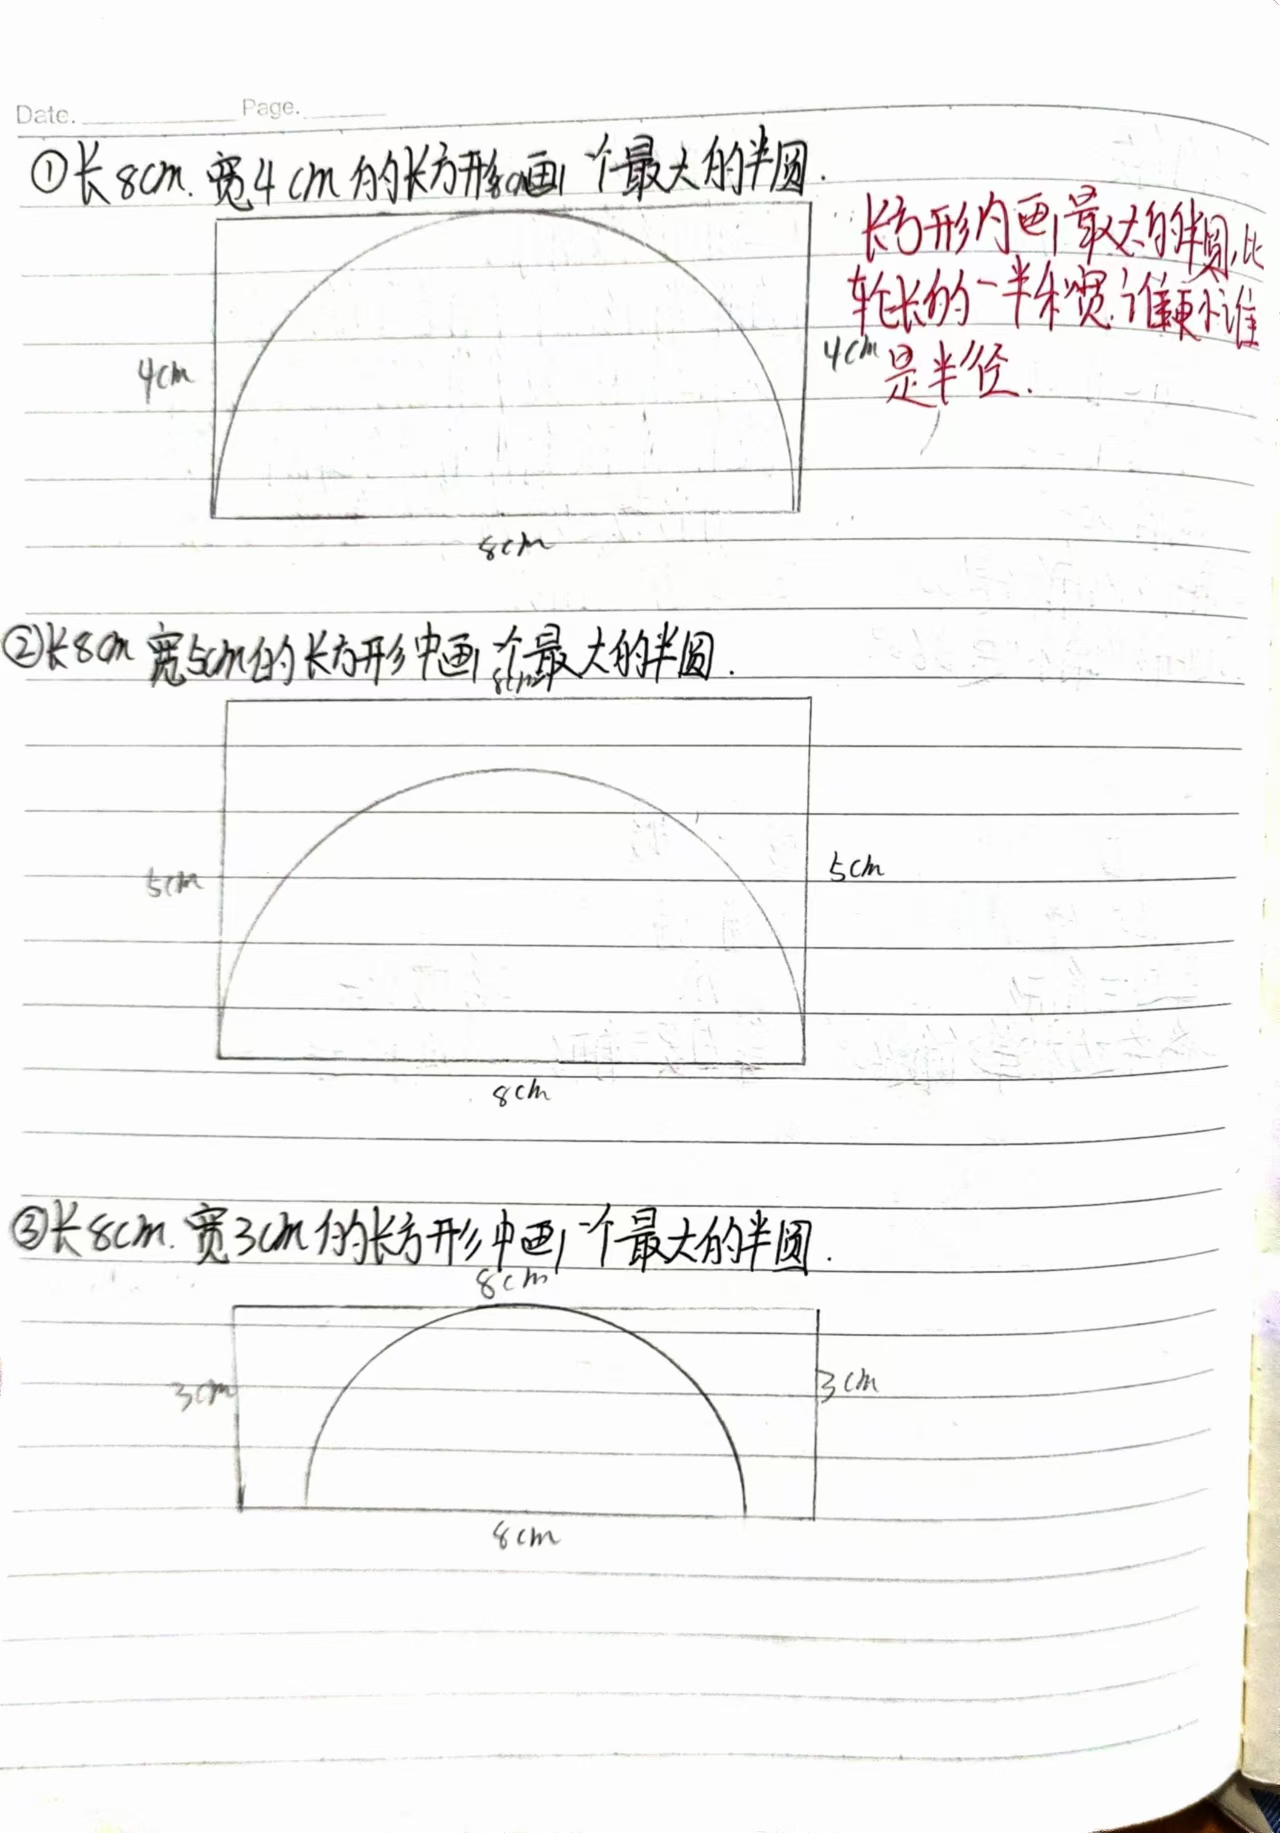 Date. Page.
①长8cm.宽4cm的长方形画一个最大的半圆.
8cm
长方形内画最大的半圆,比
较长的一半和宽.谁更小谁
是半径.
4cm
4cm
8cm
②长8cm 宽5cm的长方形中画一个最大的半圆.
8cm
5cm
5cm
8cm
③长8cm.宽3cm的长方形中画一个最大的半圆.
8cm
3cm
3cm
8cm